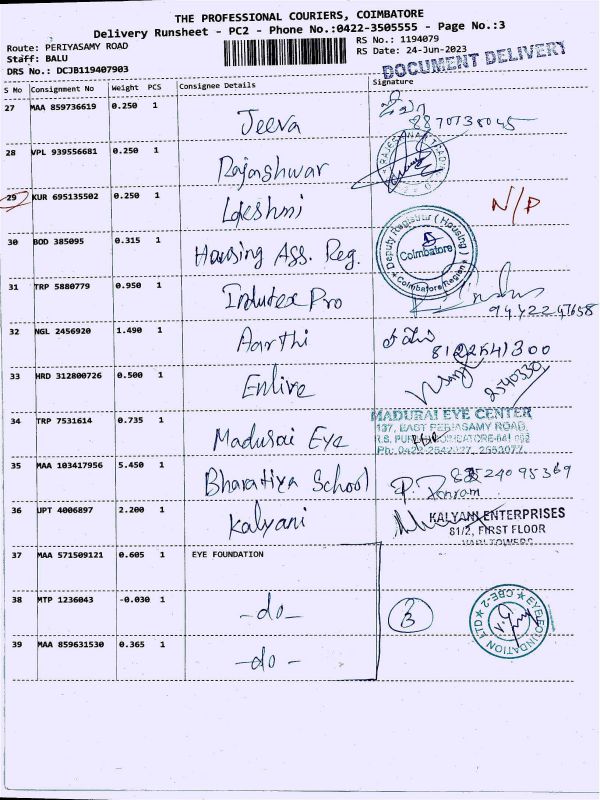 THE PROFESSIONAL COURIERS, COIMBATORE
Delivery Runsheet - PC2 - Phone No.:0422-3505555 - Page No.:3
Route: PERIYASAMY ROAD RS No.: 1194079
Staff: BALU RS Date: 24-Jun-2023
DRS No.: DCJB119407903 DOCUMENT DELIVERY
S No Consignment No Weight PCS Consignee Details Signature
27 MAA 859736619 0.250 1 Jeeva
28 VPL 939556681 0.250 1 Rajashwar
29 KUR 695135502 0.250 1 Lakshmi N/P
30 BOD 385095 0.315 1 Housing Ass. Reg. Deputy Registrar (Housing) Coimbatore Coimbatore Region
31 TRP 5880779 0.950 1 Indutex Pro
32 NGL 2456920 1.490 1 Aarthi
33 HRD 312800726 0.500 1 Enlive
34 TRP 7531614 0.735 1 Madurai Eye MADURAI EYE CENTER
137, EAST PERIASAMY ROAD,
35 MAA 103417956 5.450 1 Bharatiya School
36 UPT 4006897 2.200 1 Kalyani KALYANI ENTERPRISES
81/2, FIRST FLOOR
37 MAA 571509121 0.605 1 EYE FOUNDATION
38 MTP 1236043 -0.030 1 -do- EYE FOUNDATION LTD CBE-2
39 MAA 859631530 0.365 1 -do-